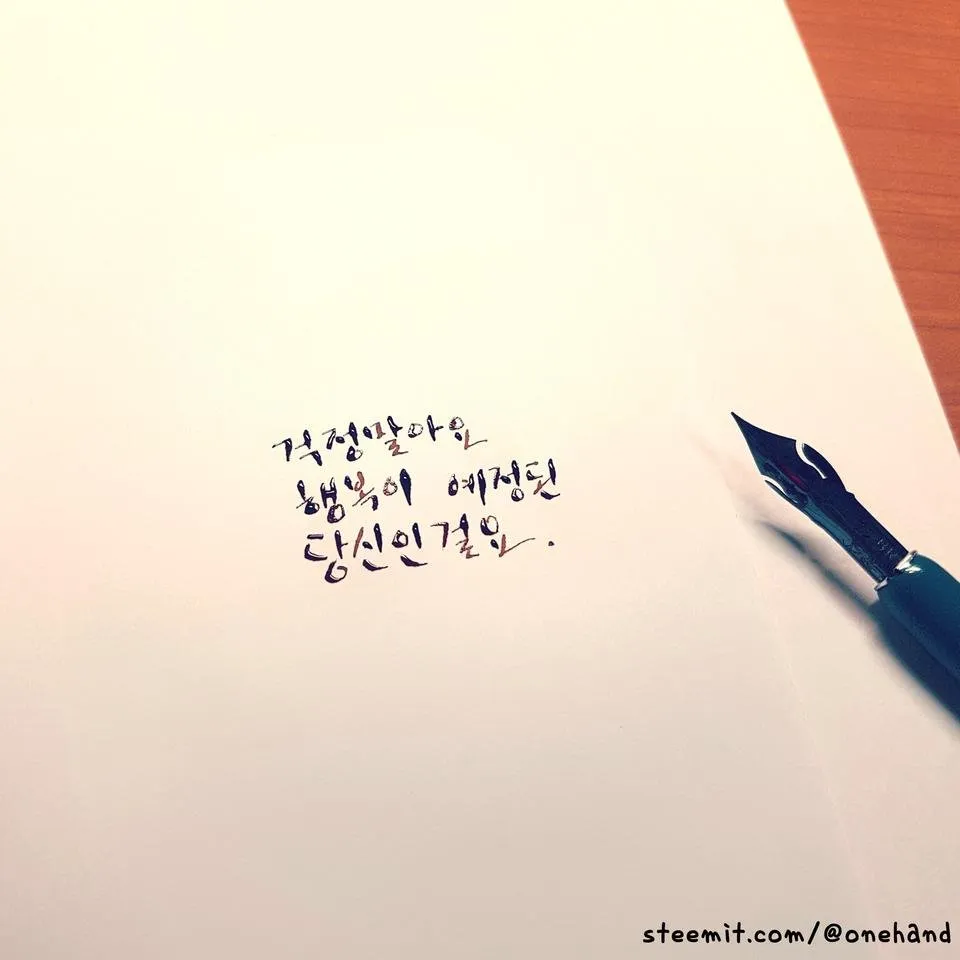 걱정말아요
행복이 예정된
당신인걸요.
steemit.com/@onehand